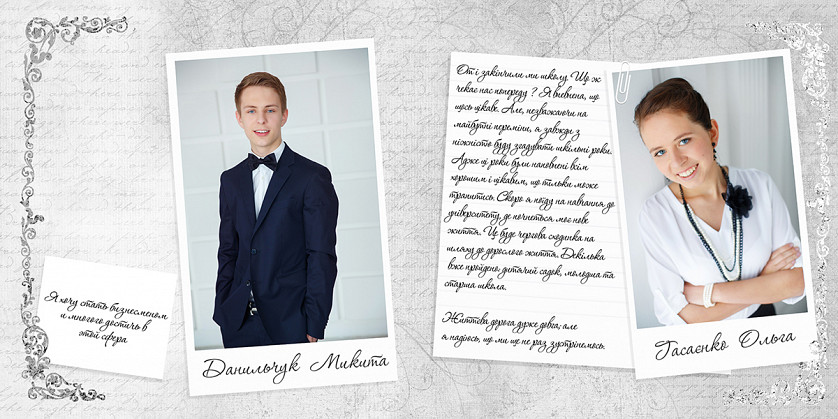 Я хочу стать бизнесменом
и многого достичь в
этой сфера
Данильчук Микита
От і закінчили ми школу. Що ж
чекає нас попереду ? Я впевнена, що
щось цікаве. Але, незважаючи на
майбутні переміни, я завжди з
ніжністю буду згадувати шкільні роки.
Адже ці роки були наповнені всім
хорошим і цікавим, що тільки може
трапитись. Скоро я поїду на навчання до
університету, де почнеться моє нове
життя. Це буде чергова сходинка на
шляху до дорослого життя. Декілька
вже пройдено: дитячий садок, молодша та
старша школа.
Життєва дорога дуже довга, але
я надіюсь, що ми ще не раз зустрінемось.
Гасаєнко Ольга